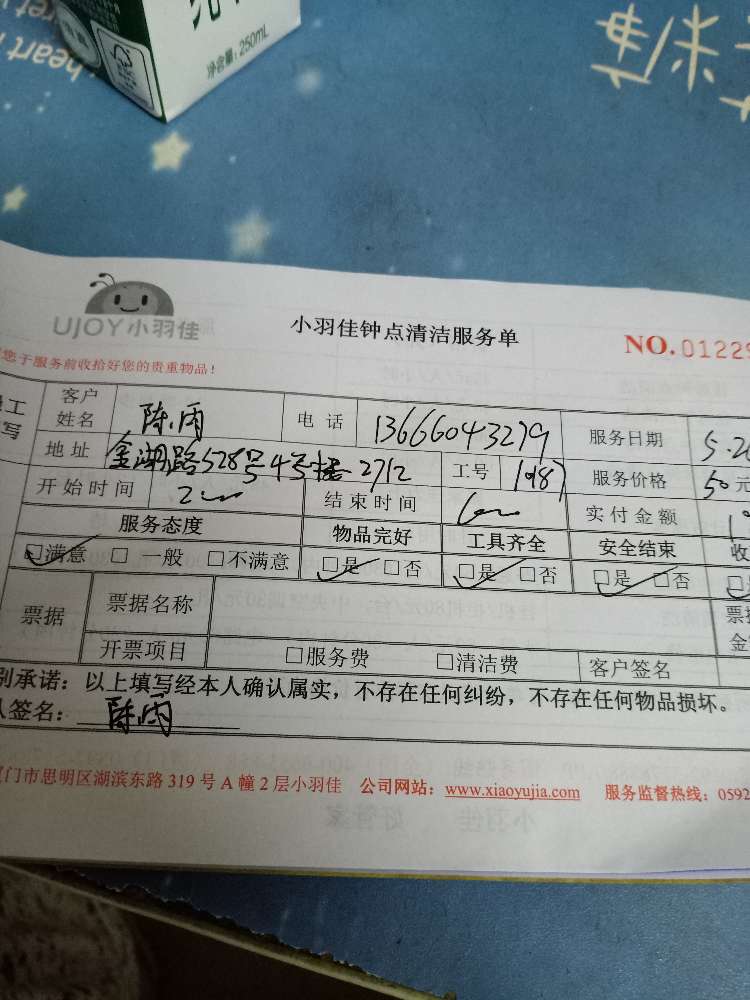 heart
净含量: 250mL
UJOY小羽佳
小羽佳钟点清洁服务单
NO. 01229
您于服务前收拾好您的贵重物品！
客户姓名 陈雨 电话 13666043279 服务日期 5.26
地址 金湖路528号4号楼2712 工号 服务价格 50元
开始时间 结束时间 实付金额
服务态度 物品完好 工具齐全 安全结束 收
□满意 □一般 □不满意 □是 □否 □是 □否 □是 □否
票据 票据名称 票据金
开票项目 □服务费 □清洁费 客户签名
别承诺：以上填写经本人确认属实，不存在任何纠纷，不存在任何物品损坏。
人签名： 陈雨
门市思明区湖滨东路 319 号 A 幢 2 层小羽佳 公司网站：www.xiaoyujia.com 服务监督热线：0592